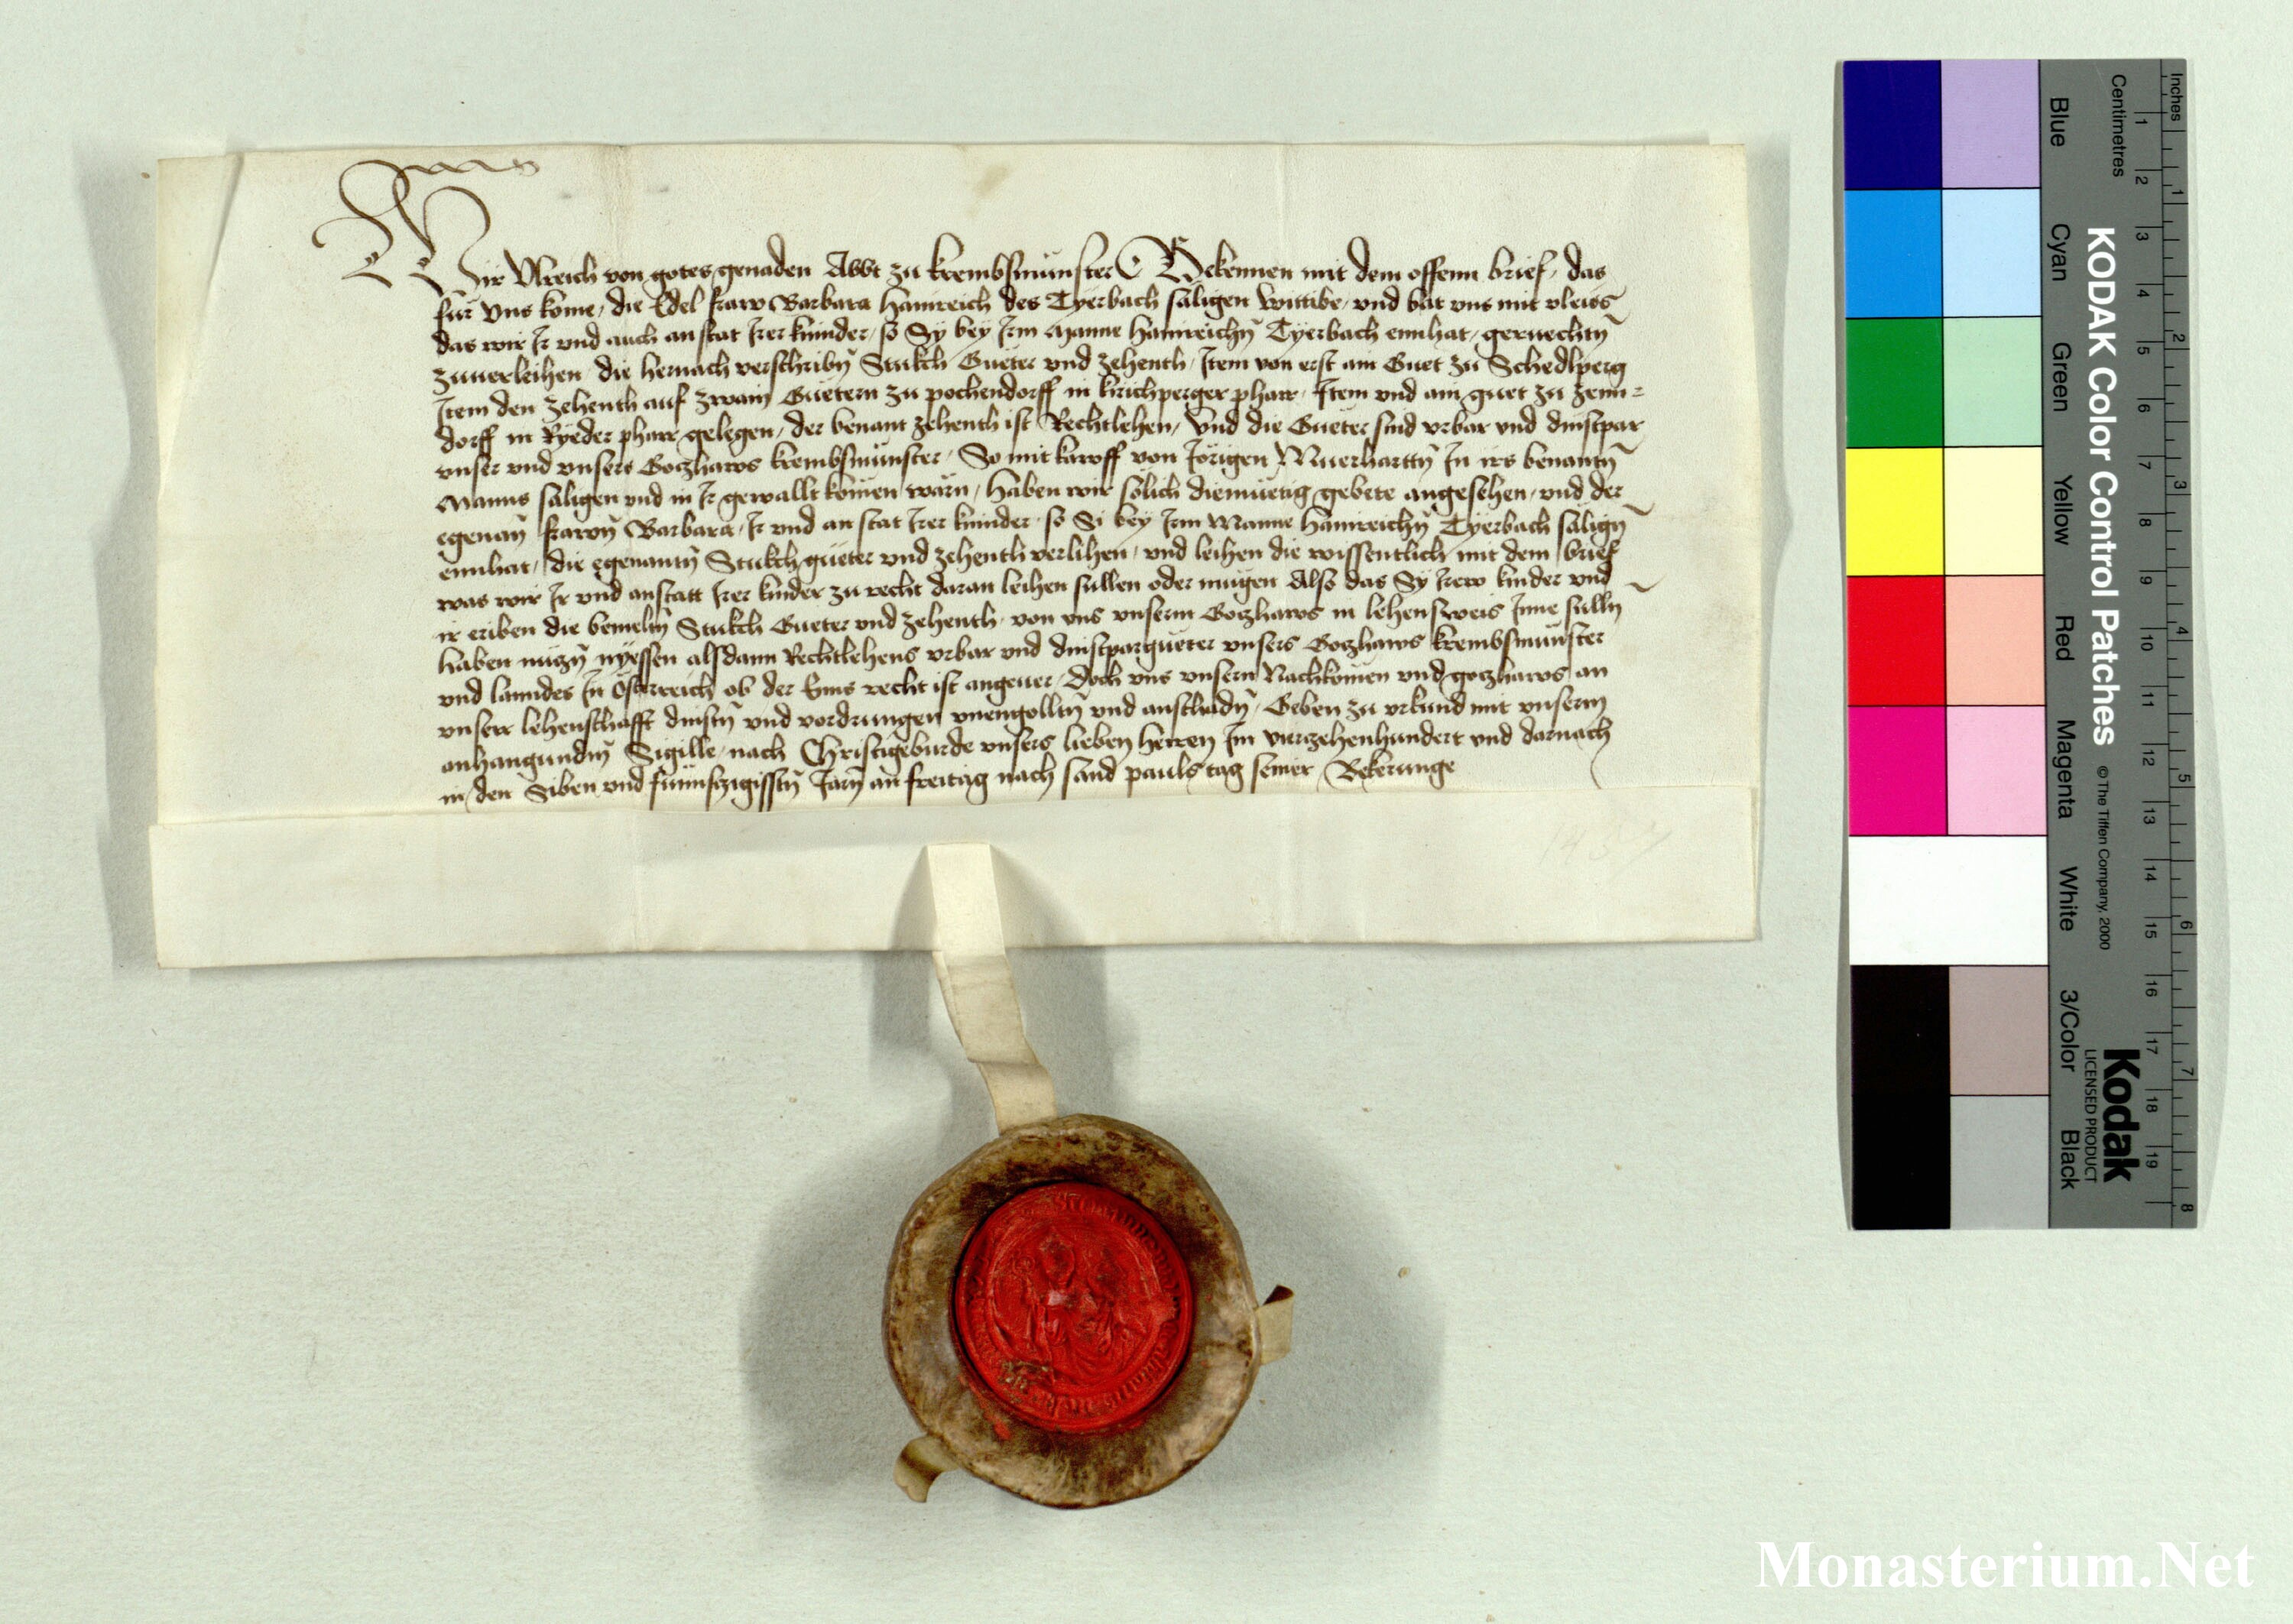 Wir Ulreich von gotes genaden Abbt zu Krembsmünster Bekennen mit dem offenn brief, das
für vns kome, die Edel fraw Barbara Hainreich des Tyërbach säligen wittibe, vnd bat vns mit vleiss
das wir Ir vnd auch anstat Irer kinnder, so Sy bey Irm Manne Hainreichñ Tyërbach ennhat, geruechtñ
zuuerleihen, die hernach verschribñ Stukch Güeter vnd zehenth, Item von erst ain Guet zu Schedlperg
Item den zehenth auf zwain Güetern zu pochendorff in kirichperger pharr, Item vnd ain guet zu zenn=
dorff in Ryeder pharr gelegen, der benant zehenth ist Rechtlehen, Vnd die Güeter sind vrbar vnd dinstpär
vnser vnd vnsers Goczhaws Krembsmünster, So mit kawff von Jörigen Muerharttñ In irs benantñ
Manns säligen vnd in Ir gewallt komen wärn, Haben wir sölich diemuetig gebete angesehen, vnd der
egenañ frawñ Barbara, Ir vnd an stat Irer kinnder, so Si bey Irm Manne Hainreichñ Tyërbach säligñ
ennhat, die egenantñ Stukch güeter vnd zehenth verlihen, vnd leihen die wissentlich mit dem brief
was wir Ir vnd anstatt Irer kinder zu recht daran leihen sullen oder mügen Also das Sy Irew kinder vnd
ir eriben die bemeltñ Stukch Gueter vnd zehenth, von vns vnserm Goczhaws in lehensweis Inne sullñ
haben nüczñ nyëssen alsdann Rechtlehens vrbar vnd dinstpargüeter vnsers Goczhaws Krembsmünster
vnd lanndes In Österreich ob der Enns recht ist angeuer, Doch vns vnsern Nachkomen vnd goczhaws an
vnserr lehenschafft dinstñ vnd vordrungen vnengolltñ vnd anschadñ, Geben zu vrkund mit vnserm
anhangundñ Sigille, nach Christigeburde vnsers lieben herren Im virczehenhundert vnd darnach
in den Siben vnd fünnfczigisstñ Jarñ an freitag nach sand pauls tag seiner Bekerunge
KODAK Color Control Patches
© The Tiffen Company, 2000
Kodak
LICENSED PRODUCT
Inches
Centimetres
1 2 3 4 5 6 7 8 9 10 11 12 13 14 15 16 17 18 19
1 2 3 4 5 6 7 8
Blue Cyan Green Yellow Red Magenta White 3/Color Black
Monasterium.Net